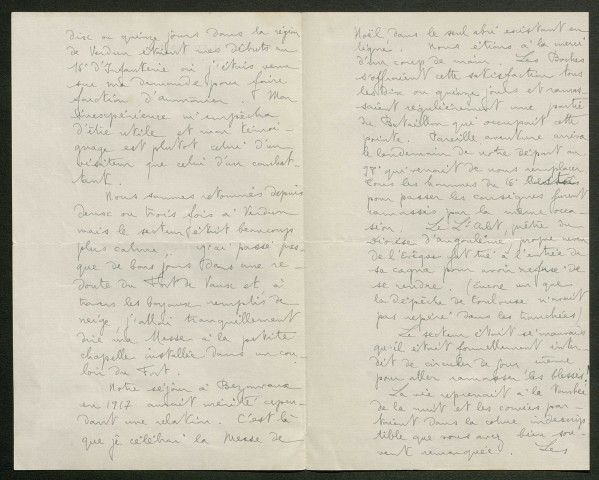 dix ou quinze jours dans la région
de Verdun étaient mes débuts au
16e d'Infanterie où j'étais venu
sur ma demande pour faire
fonction d'aumônier. Mon
inexpérience m'empêcha
d'être utile et mon témoi-
gnage est plutot celui d'un
visiteur que celui d'un combat-
tant.
Nous sommes retournés depuis
deux ou trois fois à Verdun
mais le secteur était beaucoup
plus calme, j'ai passé pres-
que de bons jours dans une re-
doute du Fort de Vaux et à
travers les boyaux remplis de
neige, j'allai tranquillement
dire ma Messe à la petite
chapelle installée dans un cou-
loir du Fort.
Notre séjour à Bezonvaux
en 1917 aurait mérité cepen-
dant une relation. C'est là
que je célébrai la Messe de
Noël, dans le seul abri existant en
ligne. Nous étions à la merci
d'un coup de main. Les Boches
s'offraient cette satisfaction tous
les dix ou quinze jours et ramas-
saient régulièrement une partie
du Bataillon qui occupait cette
pointe. Pareille aventure arriva
le lendemain de notre départ au
98e qui venait de nous remplacer
Tous les hommes du 16e
pour passer les consignes furent
ramassés par la même occa-
sion. Le Lt prêtre du
diocèse d'Angoulême, propre neveu
de l'Evêque fut tué à l'entrée de
sa cagna pour avoir refusé de
se rendre. (Encore un que
la Dépêche de Toulouse n'avait
pas repéré dans les tranchées)
Le secteur était si mauvais
qu'il était formellement inter-
dit de circuler de jour même
pour aller ramasser les blessés!
La vie reprenait à la tombée
de la nuit et les corvées par-
taient dans la cohue indescrip
tible que vous avez bien sou-
vent remarquée. Les